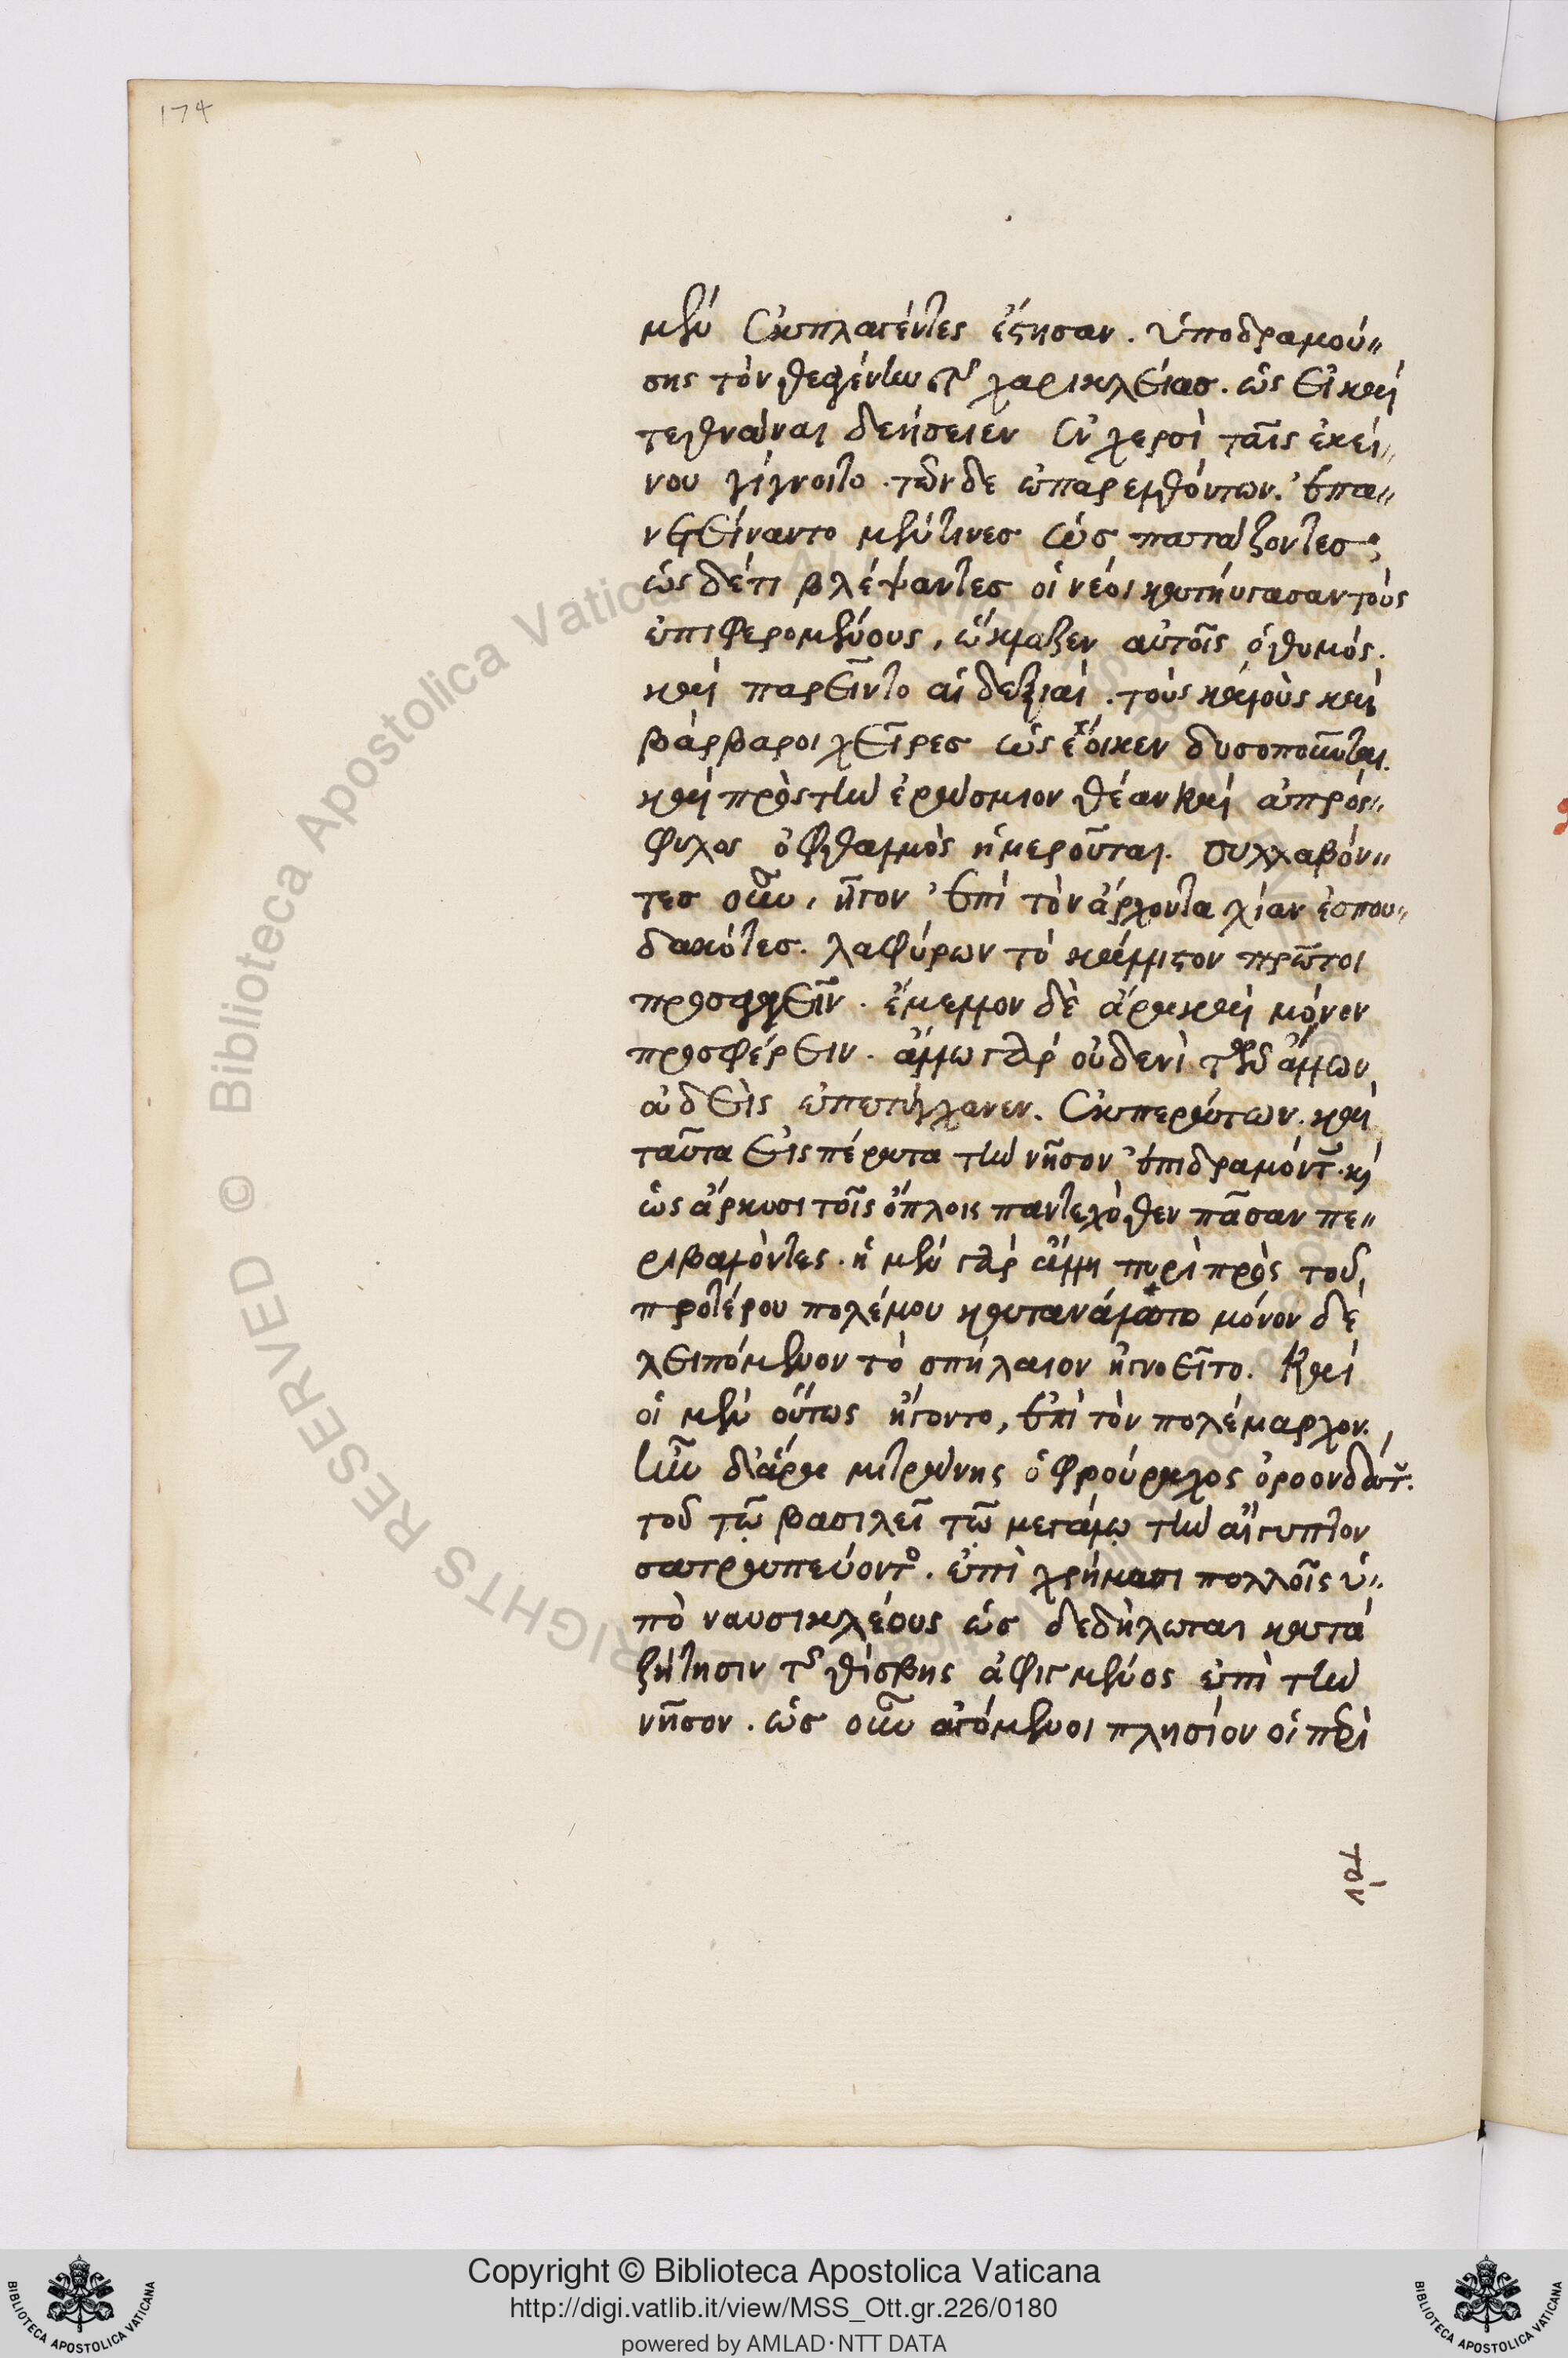 174
μὲν ἐκπλαγέντες ἔστησαν. ὑποδραμού〃
σης τὸν θεαγένην τῆς χαρικλείας. ὡς εἰ καὶ
τεθνάναι δεήσειεν ἐν χερσὶ ταῖς ἐκεί〃
νου γίγνοιτο. τῶν δὲ ἐπαρελθόντων. ἐπα〃
νετείναντο μέν τινες ὡς πατάξοντες.
ὡς δέ τι βλέψαντες οἱ νέοι κατηύγασαν τοὺς
ἐπιφερομένους, ὤκλαζεν αὐτοῖς ὁ θυμός.
καὶ παρεῖντο αἱ δεξιαί. τοὺς καλοὺς καὶ
βάρβαροι χεῖρες ὡς ἔοικεν δυσωποῦνται.
καὶ πρὸς τὴν ἐράσμιον θέαν καὶ ἀπρόσ〃
φυλος ὀφθαλμὸς ἡμεροῦται. συλλαβόν〃
τες οὖν, ἦγον ἐπὶ τὸν ἄρχοντα λίαν ἐσπου〃
δακότες. λαφύρων τὸ κάλλιστον πρῶτοι
προσαγαγεῖν. ἔμελλον δὲ ἄρα καὶ μόνον
προσφέρειν. ἄλλω γὰρ οὐδενὶ τῶν ἄλλων
οὐδεὶς ἐπετύγχανεν. ἐκ περάτων. καὶ
ταῦτα εἰς πέρατα τὴν νῆσον ἐπιδραμόντες. καὶ
ὡς ἄρκυσι τοῖς ὅπλοις πανταχόθεν πᾶσαν πε〃
ριβαλόντες. ἡ μὲν γὰρ ἄλλη πυρὶ πρὸς τοῦ
προτέρου πολέμου κατανάλωτο μόνον δὲ
λειπόμενον τὸ σπήλαιον ἠγνοεῖτο. Καὶ
οἱ μὲν οὕτως ἤγοντο, ἐπὶ τὸν πολέμαρχον.
ἦν δὲ ἄρα μιτράνης ὁ φρούραχος ὀροονδάτου.
τοῦ τῷ βασιλεῖ τῷ μεγάλῳ τὴν αἴγυπτον
σατραπεύοντος. ἐπὶ χρήμασι πολλοῖς ὑ〃
πὸ ναυσικλέους ὡς δεδήλωται κατὰ
ζήτησιν τῆς θίσβης ἀφιγμένος ἐπὶ τὴν
νῆσον. ὡς οὖν ἀγόμενοι πλησίον οἱ περὶ
Copyright © Biblioteca Apostolica Vaticana
http://digi.vatlib.it/view/MSS_Ott.gr.226/0180
powered by AMLAD·NTT DATA